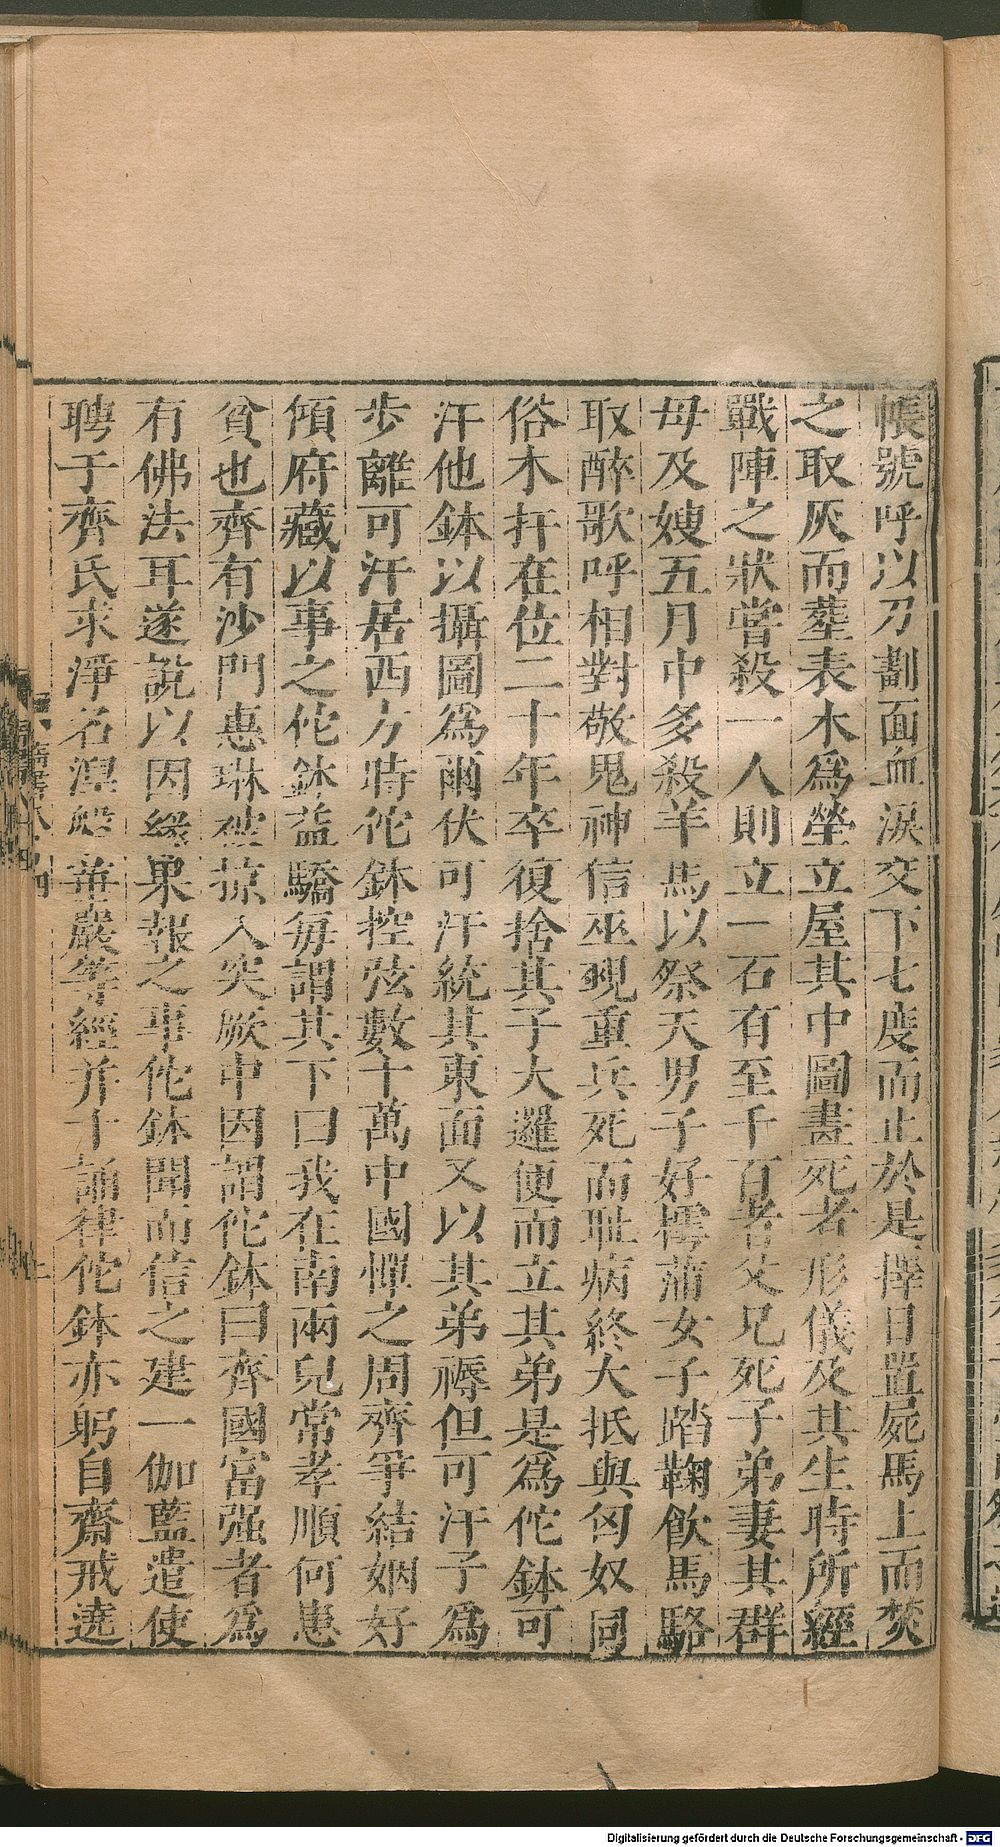 帳號呼以刀劃面血淚交下七度而止於是擇日置屍馬上而焚
之取灰而葬表木爲塋立屋其中圖畫死者形儀及其生時所經
戰陣之狀嘗殺一人則立一石有至千百者父兄死子弟妻其群
母及嫂五月中多殺羊馬以祭天男子好樗蒲女子踏鞠飮馬駱
取醉歌呼相對敬鬼神信巫覡重兵死而耻病終大抵與匈奴同
俗木扞在位二十年卒復捨其子大邏便而立其弟是爲佗鉢可
汗他鉢以攝圖爲爾伏可汗統其東面又以其弟褥但可汗子爲
步離可汗居西方時佗鉢控弦數十萬中國憚之周齊爭結姻好
傾府藏以事之佗鉢益驕每謂其下曰我在南兩兒常孝順何患
貧也齊有沙門惠琳被掠入突厥中因謂佗鉢曰齊國富强者爲
有佛法耳遂說以因緣果報之事佗鉢聞而信之建一伽藍遣使
聘于齊氏求淨名涅槃華嚴等經并十誦律佗鉢亦躬自齋戒遶
Digitalisierung gefördert durch die Deutsche Forschungsgemeinschaft - DFG